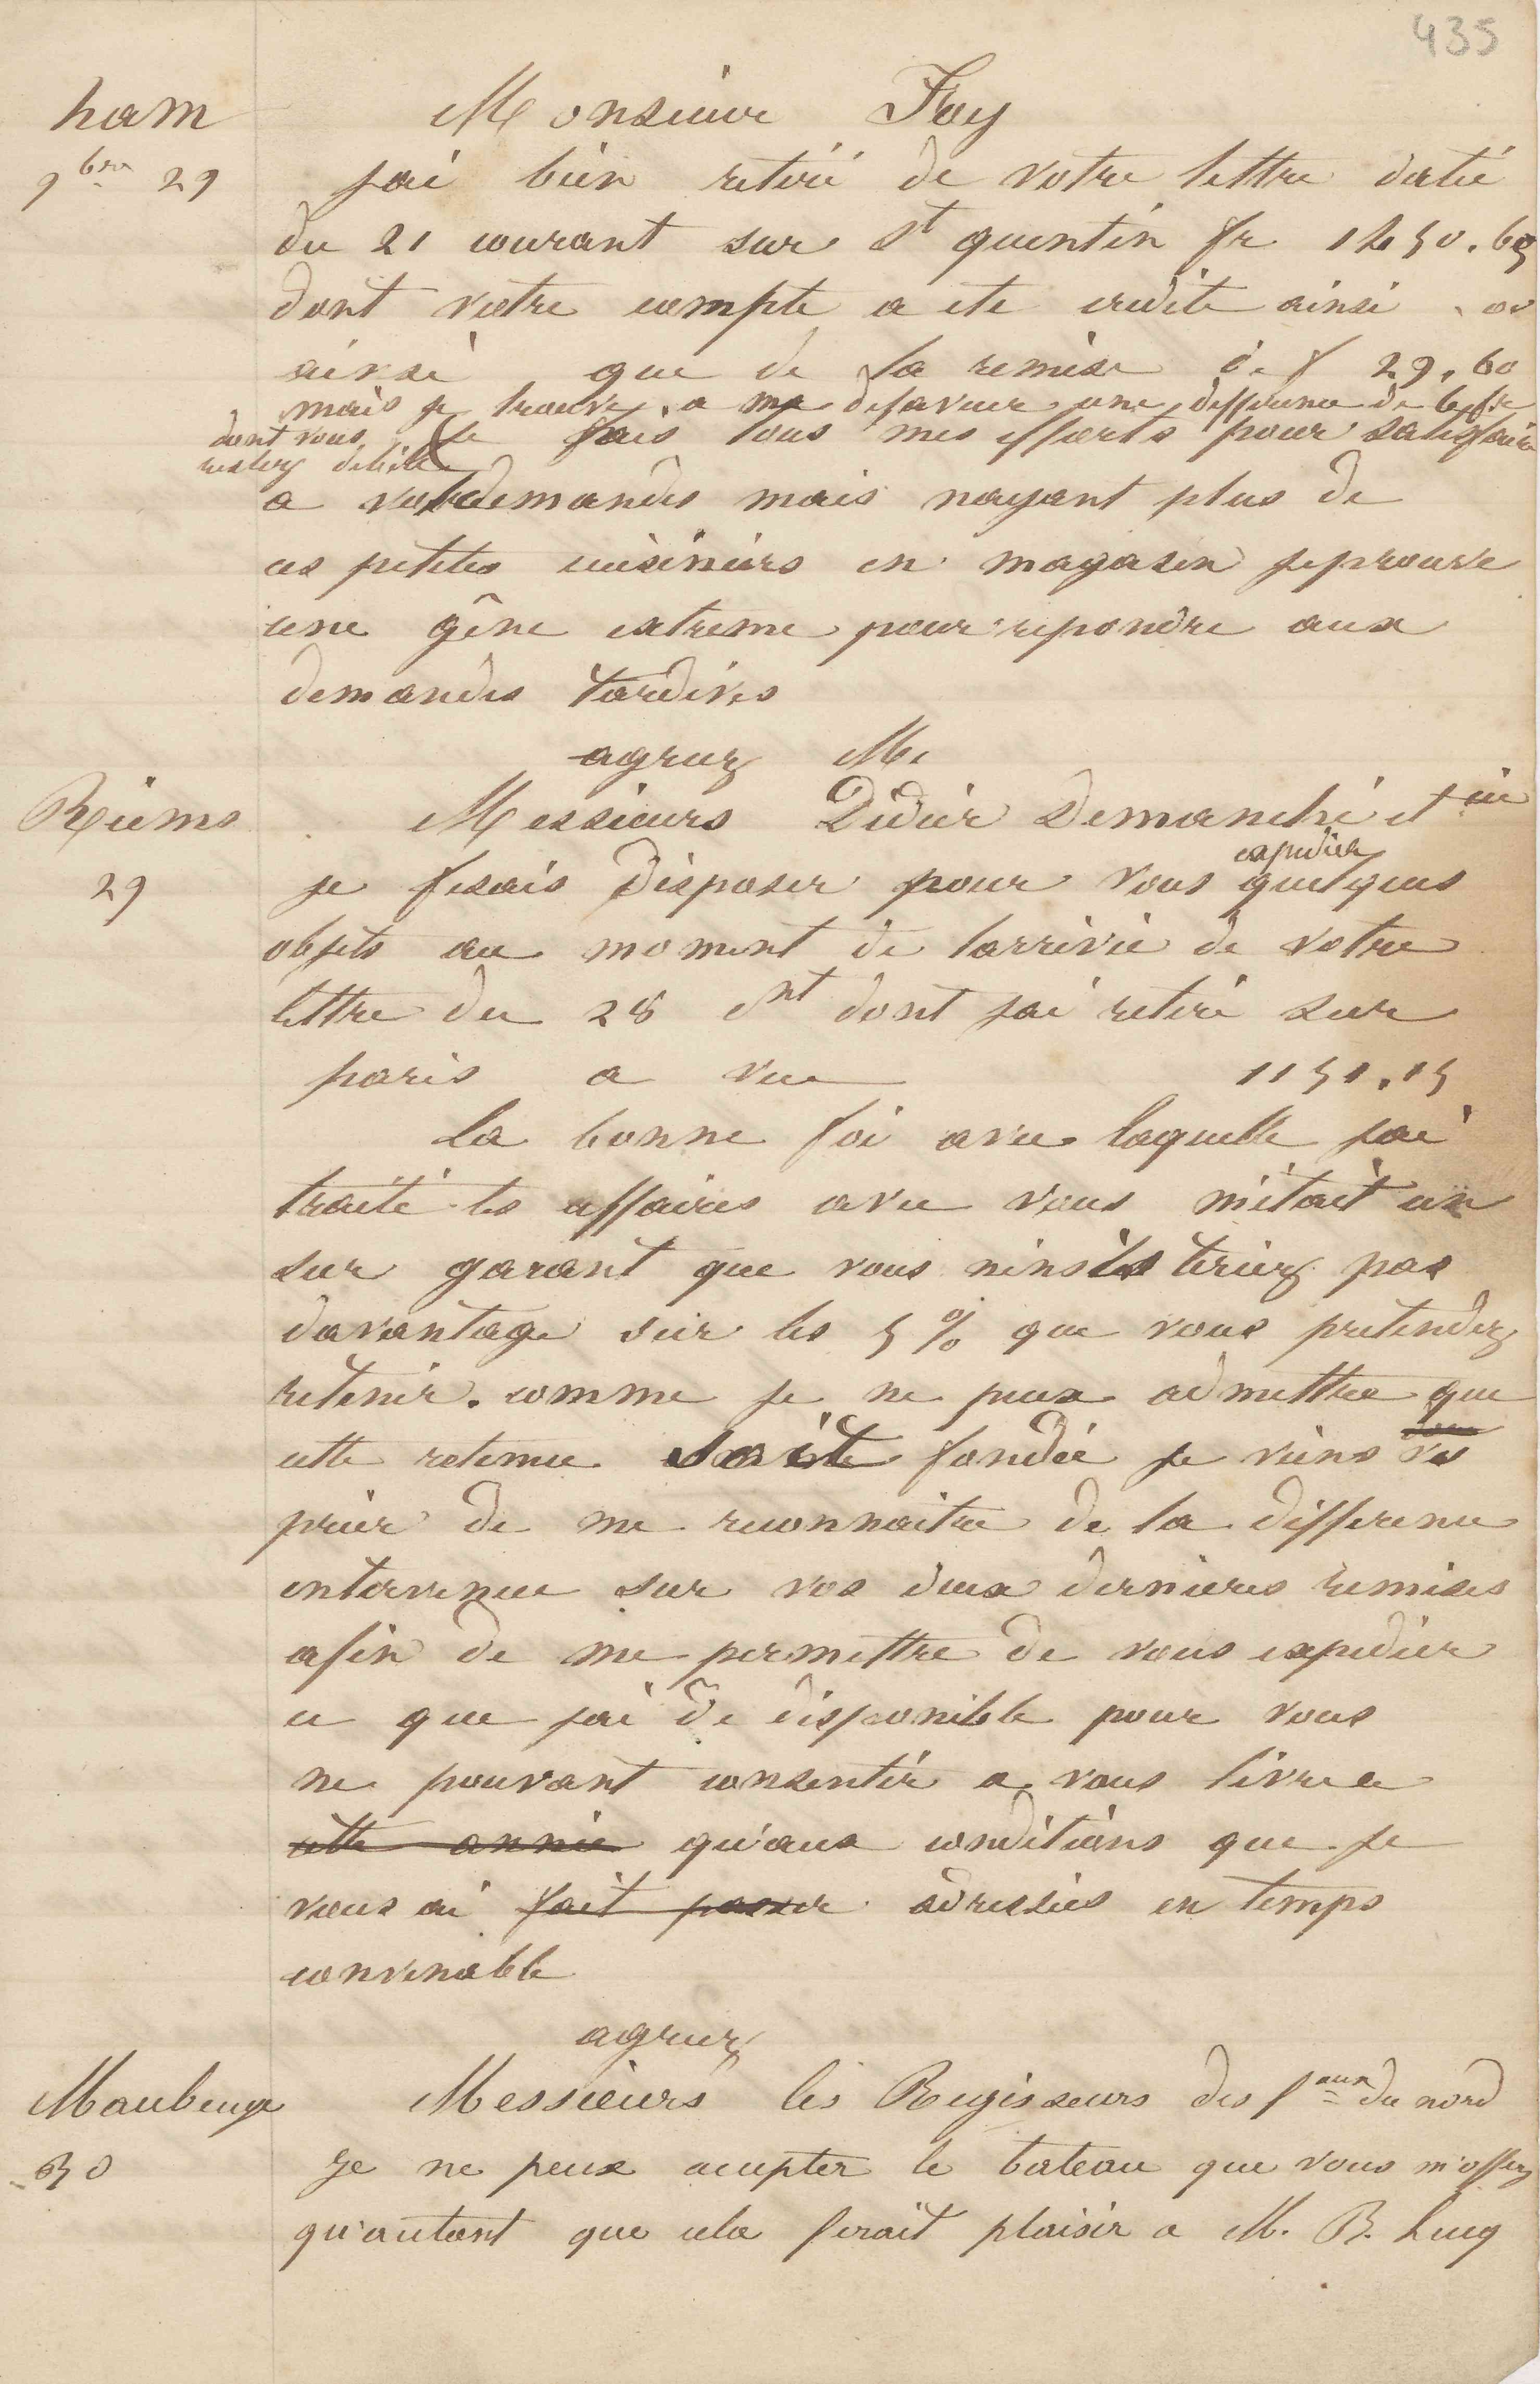 435
ham
Monsieur Foy
9bre 29
jai bien retiré de votre lettre datée
du 21 courant sur St quentin fr 1450.65
dont votre compte a ete crédité ainsi
ainsi que de la remise de f 29.60
mais je trouve a ma defaveur une difference de
dont vous je fais tous mes efforts pour satisfaire
restez debité
a vos demandes mais nayant plus de
ces petites cuisinières en magasin jeprouve
une gêne extreme pour repondre aux
demandes tardives
agreez M.
Reims
Messieurs Didier Demanché et cie
expedier
29
je fesais disposer pour vous quelques
objets au moment de larrivée de votre
lettre du 28 cnt dont jai retiré sur
paris a vue 1151.15
La bonne foi avec laquelle jai
traité les affaires avec vous métait un
sur garant que vous ninsisteriez pas
davantage sur les 5% que vous pretendez
retenir. comme je ne peux admettre que
cette retenue soit fondée je viens vs
prier de me reconnaitre de la difference
intervenue sur vos deux dernieres remises
afin de me permettre de vous expedier
ce que jai de disponible pour vous
ne pouvant consentir a vous livrer
cette année qu'aux conditions que je
vous ai fait passer adressées en temps
convenable
agreez
Maubeuge
Messieurs les Regisseurs des faux du nord
30
je ne peux accepter le bateau que vous m'offrez
qu'autant que cela ferait plaisir a M. B. Lucq